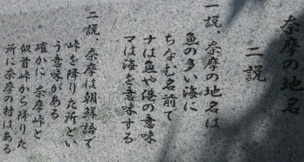 奈摩の地名
二説
一説、奈摩の地名は
魚の多い海に
ちなむ名前で
ナは魚や港の意味
マは海を意味する
二説、奈摩は朝鮮語で
峠を降りた所とい
う意味がある
確かに、奈摩峠と
似首峠から降りた
所に奈摩の村はある